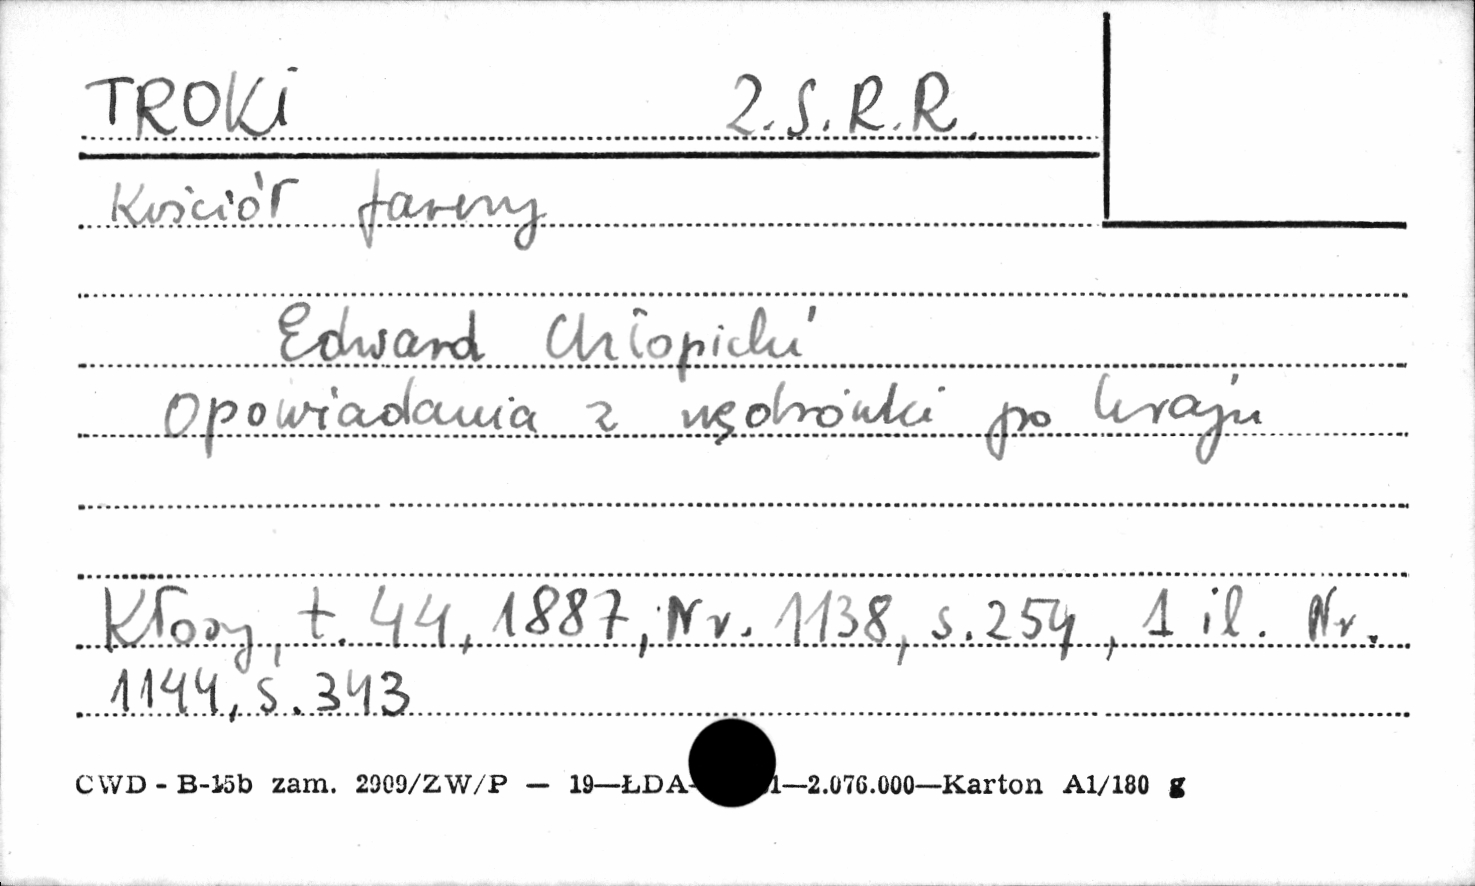 TROKI 2.S.R.R.
Kościół farny
Edward Chłopicki
Opowiadania z wędrówki po kraju
Kłosy, t. 44, 1887, Nr. 1138, s. 254, 1 il. Nr.
1144, s. 343
CWD - B-15b zam. 2909/ZW/P — 19—ŁDA- 1—2.076.000—Karton A1/180 g